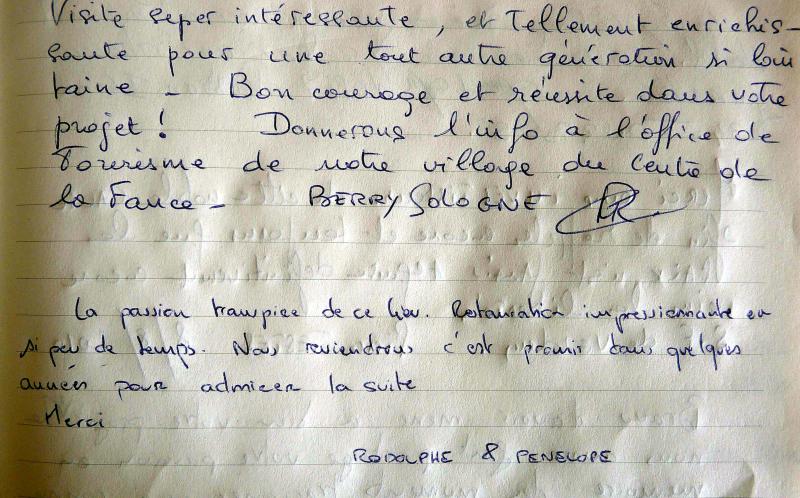 Visite super intéressante, et Tellement enrichis-
sante pour une tout autre génération si loin
taine - Bon courage et réussite dans votre
projet ! Donnerons l'info à l'office de
Tourisme de notre village du Centre de
la France - BERRY SOLOGNE
La passion transpire de ce lieu. Restauration impressionnante en
si peu de temps. Nous reviendrons c'est promis dans quelques
années pour admirer la suite
Merci
RODOLPHE & PENELOPE